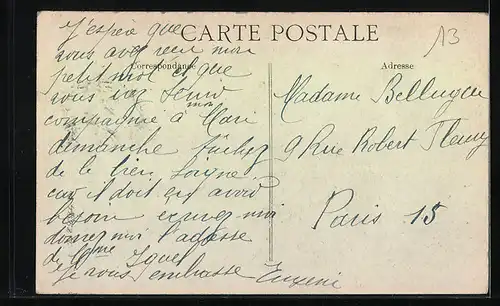 CARTE POSTALE
Correspondance
Adresse
A3
J'espère que
vous avez reçu mon
petit mot et que
vous irez tenir
compagnie à mon Mari
dimanche tâchez
de le bien soigné
car il doit en avoir
besoin
donnez moi l'adresse
de Mme
Je vous embrasse Eugénie
Madame
9 Rue Robert Fleury
Paris 15